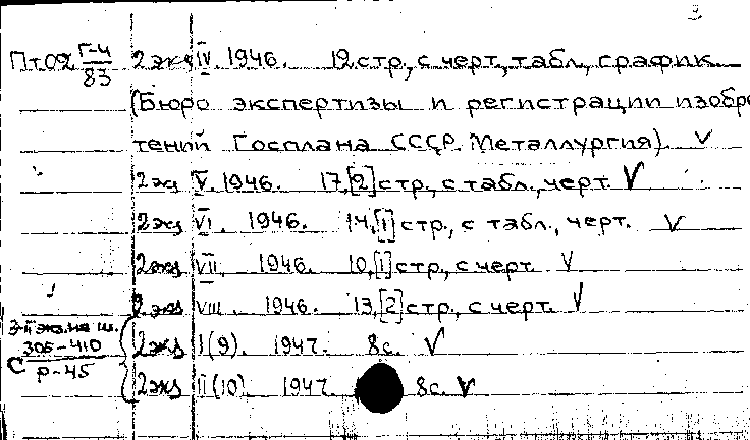 3
Пт02 Г-4/83 2 экз IV. 1946. 12 стр., с черт., табл., график.
(Бюро экспертизы и регистрации изобре
тений Госплана СССР. Металлургия) V
2 экз V. 1946. 17,[2] стр., с табл., черт. V
2 экз VI. 1946. 14,[1] стр., с табл., черт. V
2 экз VII. 1946. 10,[1] стр., с черт. V
2 экз VIII. 1946. 13,[2] стр., с черт. V
3-й экз. на ш.
С 305-410/Р-45
2 экз I(9). 1947. 8с. V
2 экз II(10). 1947. 8с. V